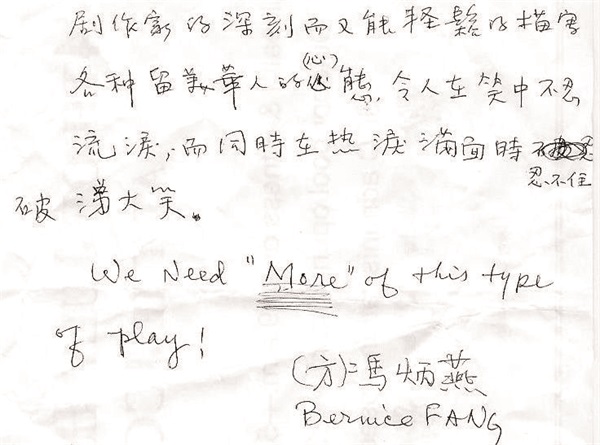 劇作家的深刻而又能軽鬆的描写
(心)
各种留美華人的心態,令人在笑中不忍
流淚,而同時在热淚滿面時
忍不住
破涕大笑。
We Need "More" of this type
of play!
(方)馮炳燕
Bernice FANG